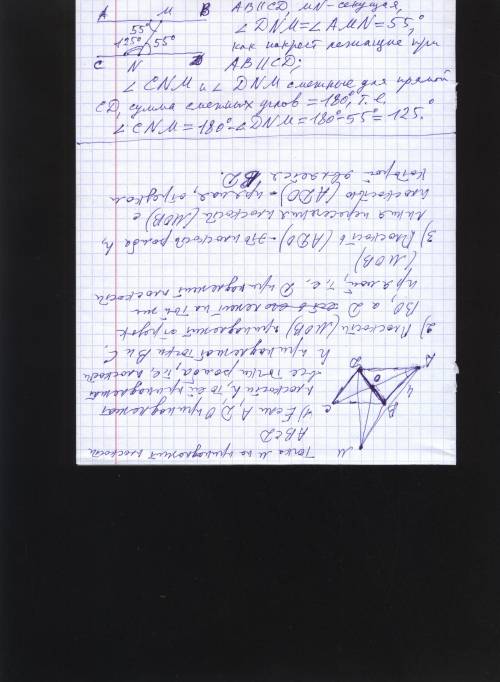 A M B
55°
125° 55°
C N D
AB||CD, MN-секущая,
∠DNM=∠AMN=55°,
как накрест лежащие при
AB||CD;
∠CNM и ∠DNM смежные для прямой
CD, сумма смежных углов =180°, т.е.
∠CNM=180°-∠DNM=180°-55°=125°
Точка M не принадлежит плоскости
ABCD
1) Если A, D, O принадлежат
плоскости h, то ей принадлежат
все точки ромба, т.е. плоскости
h принадлежат точки B и C.
2) Плоскости (MOB) принадлежит отрезок
BO, а D лежит на той же
прямой, т.е. D принадлежит плоскости
(MOB)
3) Плоскость (ADO) - это плоскость ромба h,
линия пересечения плоскости (MOB) с
плоскостью (ADO) - прямая, отрезком
которой является BD.
M
C D
O
B A
4